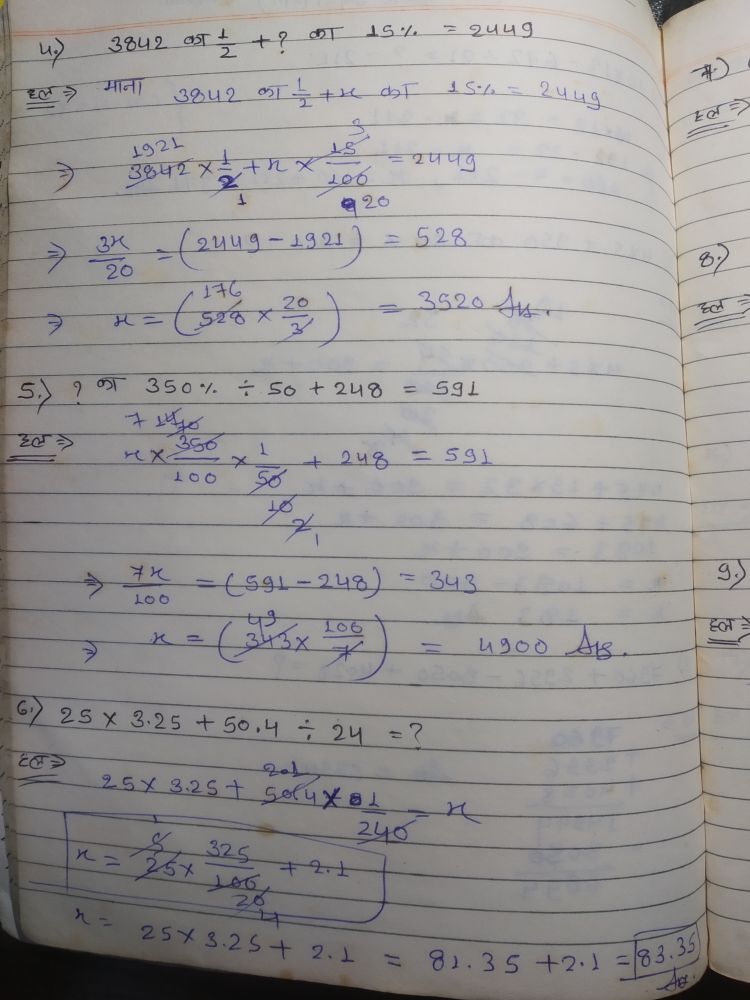 4.) 3842 का 1/2 + ? का 15% = 2449
हल ⇒ माना 3842 का 1/2 + x का 15% = 2449
1921 3
⇒ 3842 × 1/2 + x × 15/100 = 2449
1 20
⇒ 3x/20 = (2449 - 1921) = 528
176
⇒ x = (528 × 20/3) = 3520 Ans.
5.) ? का 350% ÷ 50 + 248 = 591
7 14 70
हल ⇒ x × 350/100 × 1/50 + 248 = 591
10
2
1
⇒ 7x/100 = (591 - 248) = 343
49
⇒ x = (343 × 100/7) = 4900 Ans.
6.) 25 × 3.25 + 50.4 ÷ 24 = ?
हल ⇒
2.1
25 × 3.25 + 50.4 × 1/240 = x
5
x = 25 × 325/100 + 2.1
20
4
x = 25 × 3.25 + 2.1 = 81.35 + 2.1 = 83.35
Ans.
7.)
हल ⇒
8.)
हल ⇒
9.)
हल ⇒